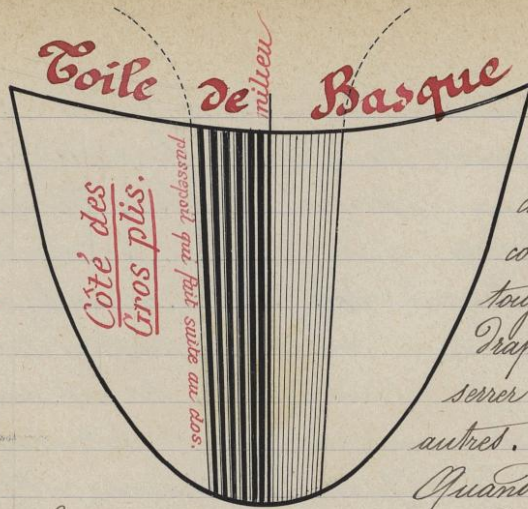 Toile de Basque
milieu
Côté des
Gros plis.
passepoil qui fait suite au dos.
serrer
autres.
Quand